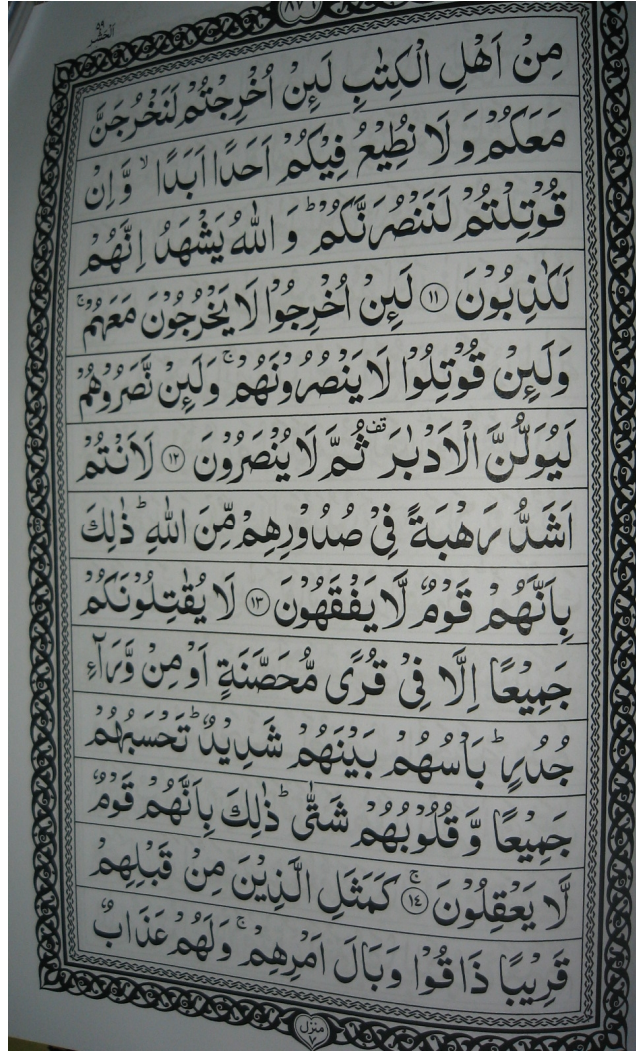 الحشر ٥٩
٨٧٦
مِنْ اَهْلِ الْكِتٰبِ لَىِٕنْ اُخْرِجْتُمْ لَنَخْرُجَنَّ
مَعَكُمْ وَ لَا نُطِیْعُ فِیْكُمْ اَحَدًا اَبَدًا ۙ وَّ اِنْ
قُوْتِلْتُمْ لَنَنْصُرَنَّكُمْ ؕ وَ اللّٰهُ یَشْهَدُ اِنَّهُمْ
لَكٰذِبُوْنَ ⑪ لَىِٕنْ اُخْرِجُوْا لَا یَخْرُجُوْنَ مَعَهُمْ ۚ
وَلَىِٕنْ قُوْتِلُوْا لَا یَنْصُرُوْنَهُمْ ۚ وَلَىِٕنْ نَّصَرُوْهُمْ
لَیُوَلُّنَّ الْاَدْبٰرَ قف ثُمَّ لَا یُنْصَرُوْنَ ⑫ لَاَنْتُمْ
اَشَدُّ رَهْبَةً فِیْ صُدُوْرِهِمْ مِّنَ اللّٰهِ ؕ ذٰلِكَ
بِاَنَّهُمْ قَوْمٌ لَّا یَفْقَهُوْنَ ⑬ لَا یُقَاتِلُوْنَكُمْ
جَمِیْعًا اِلَّا فِیْ قُرًى مُّحَصَّنَةٍ اَوْ مِنْ وَّرَآءِ
جُدُرٍ ؕ بَاْسُهُمْ بَیْنَهُمْ شَدِیْدٌ ؕ تَحْسَبُهُمْ
جَمِیْعًا وَّ قُلُوْبُهُمْ شَتّٰى ؕ ذٰلِكَ بِاَنَّهُمْ قَوْمٌ
لَّا یَعْقِلُوْنَ ۚ ⑭ كَمَثَلِ الَّذِیْنَ مِنْ قَبْلِهِمْ
قَرِیْبًا ذَاقُوْا وَبَالَ اَمْرِهِمْ ۚ وَلَهُمْ عَذَابٌ
منزل ٧